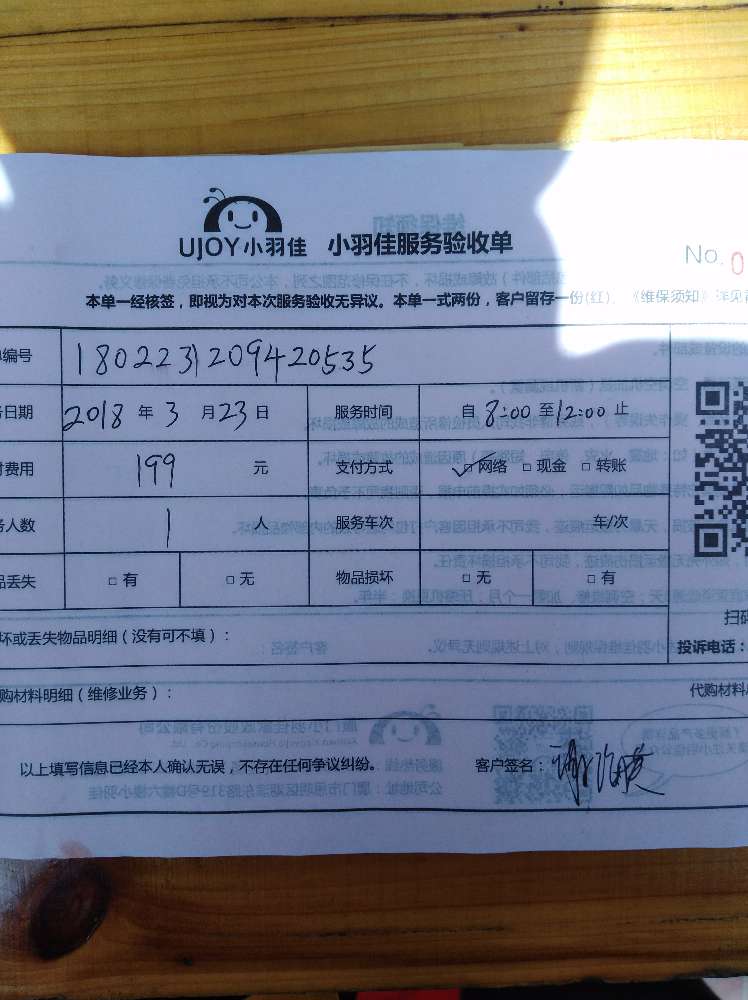 UJOY小羽佳 小羽佳服务验收单
No. 0
本单一经核签，即视为对本次服务验收无异议。本单一式两份，客户留存一份(红)。《维保须知》详见
编号 1802231209420535
日期 2018 年 3 月 23 日 服务时间 自 8:00 至 12:00 止
费用 199 元 支付方式 ☑网络 □现金 □转账
人数 1 人 服务车次 车/次
丢失 □有 □无 物品损坏 □无 □有
坏或丢失物品明细（没有可不填）：
扫码
投诉电话：
购材料明细（维修业务）：
代购材料
以上填写信息已经本人确认无误，不存在任何争议纠纷。 客户签名：